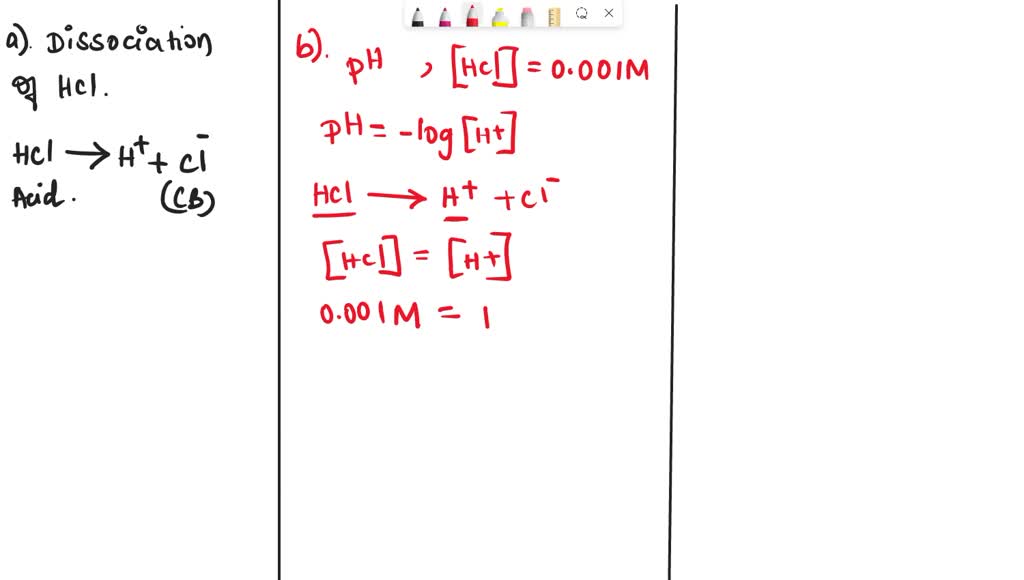 a). Dissociation
of HCl.
HCl → H⁺ + Cl⁻
Acid. (CB)
b). pH , [HCl] = 0.001M
pH = -log [H+]
HCl → H⁺ + Cl⁻
[HCl] = [H+]
0.001M = 1